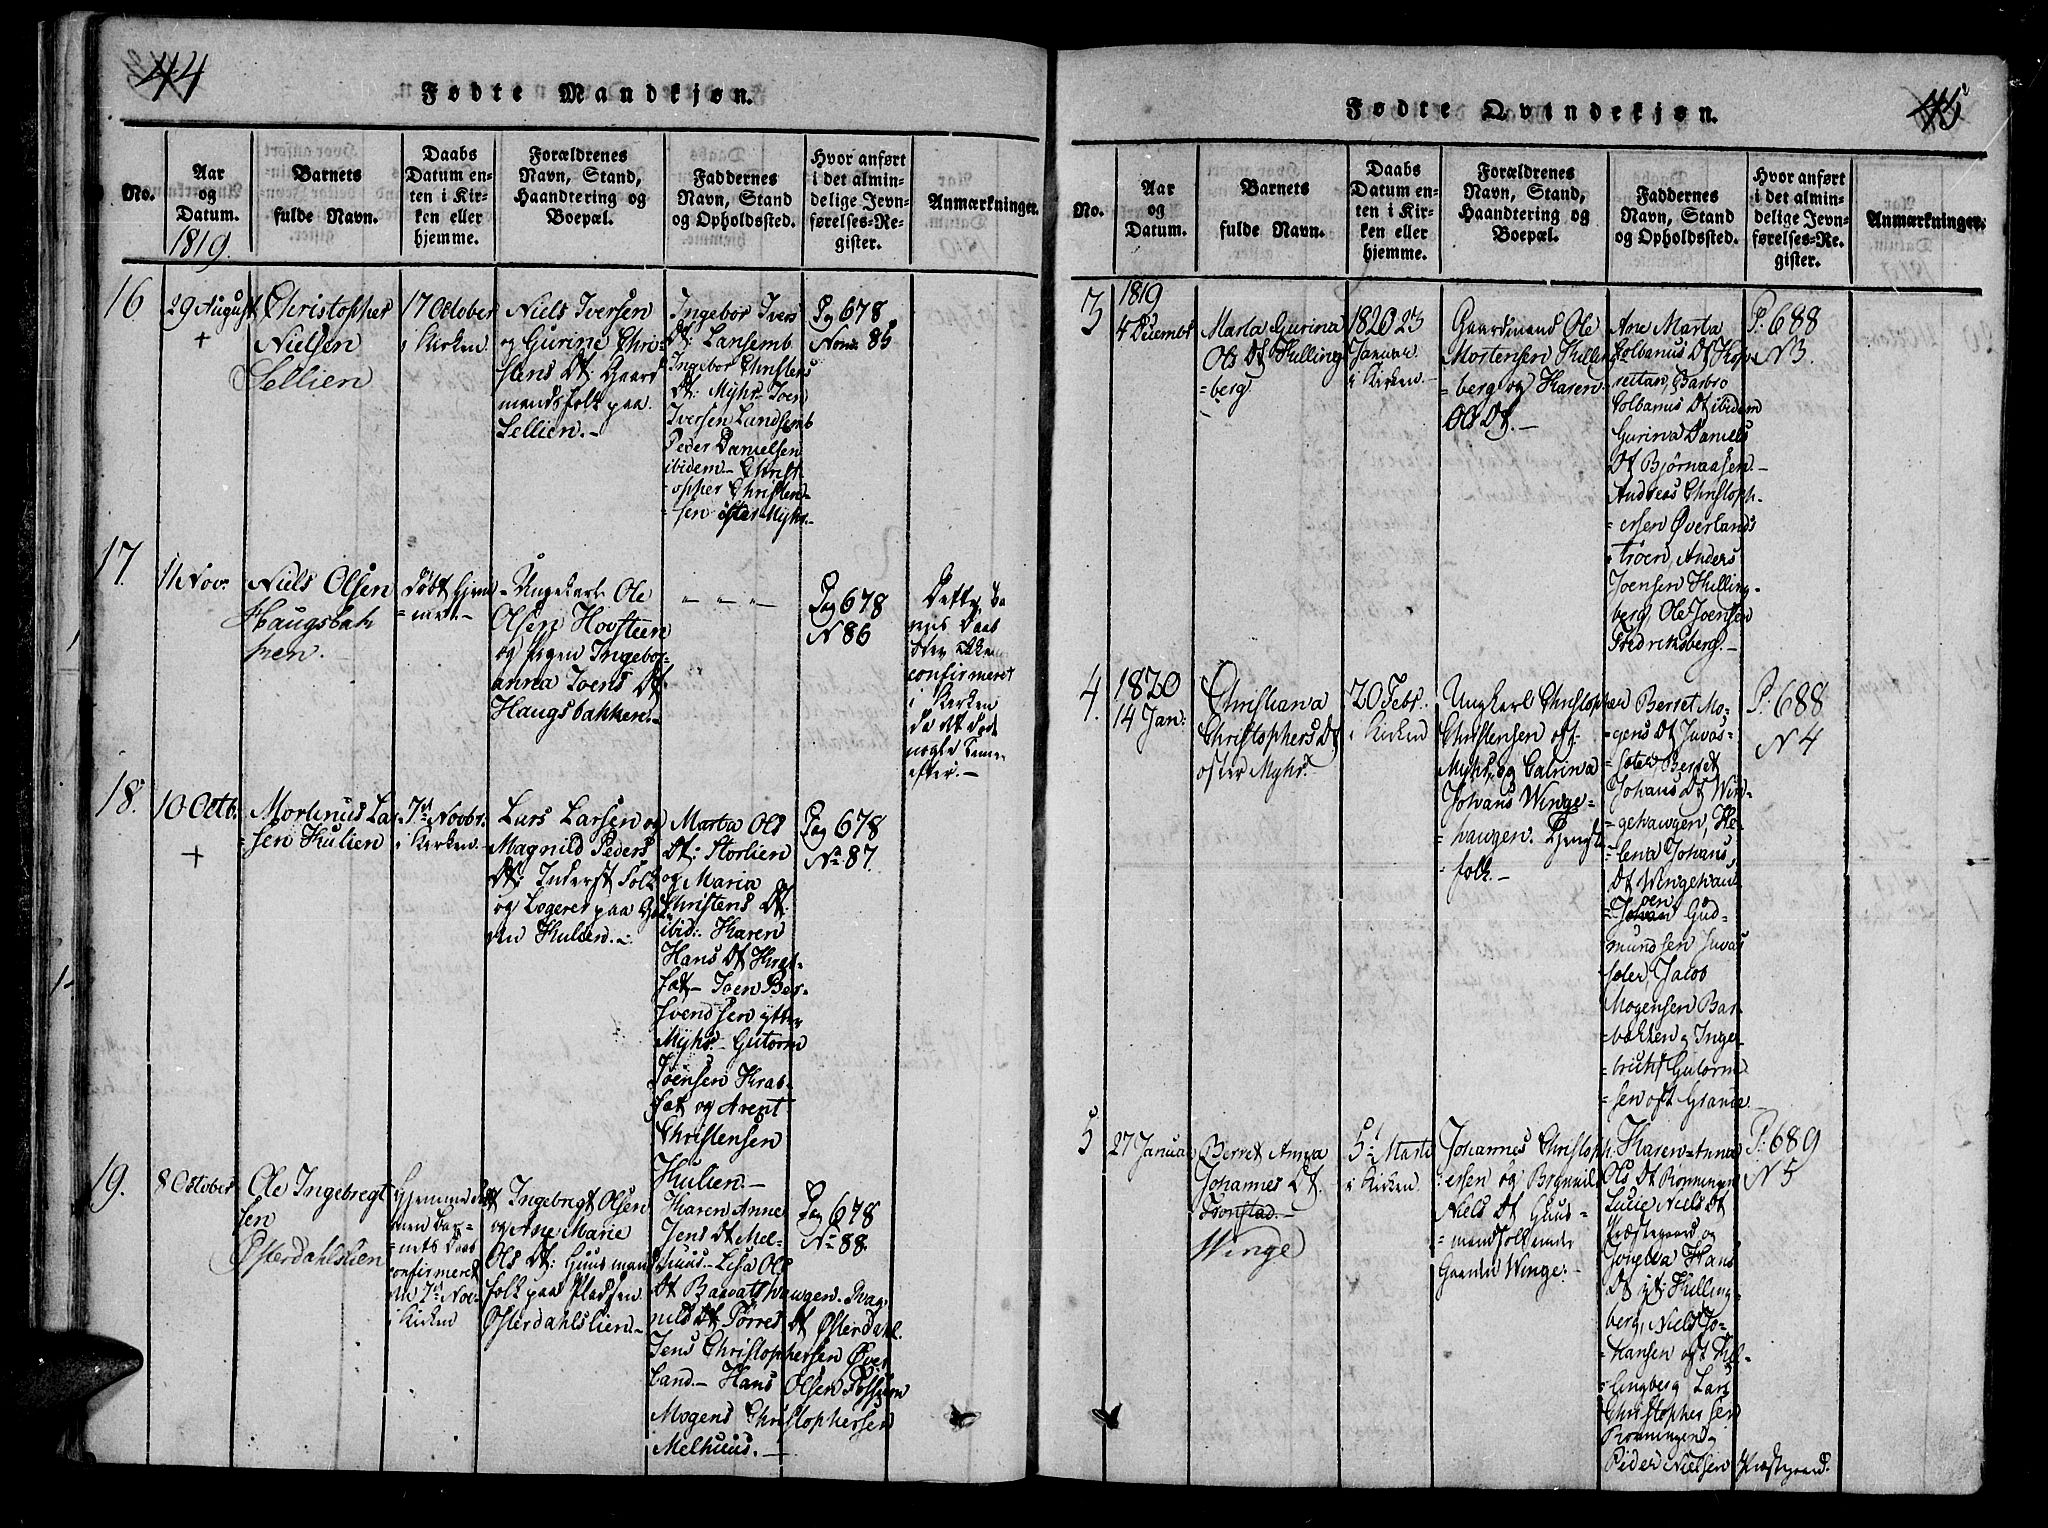 44
Fødte Mandkjøn.
No.
Aar
og
Datum.
1819.
Barnets
fulde Navn.
Daabs
Datum en-
ten i Kir-
ken eller
hjemme.
Forældrenes
Navn, Stand,
Haandtering og
Boepæl.
Faddernes
Navn, Stand
og Opholdssted.
Hvor anført
i det almin-
delige Jevn-
førelses-Re-
gister.
Anmærkninger.
16
29 August
+
Christopher
Nielsen
Sellien
17 October
i Kirken.
Niels Iversen
og Gurine Chri-
stens Dt: Gaard
mandsfolk paa
Sellien.-
Ingebor Ivers
Dt: Lansemb
Ingebor Christens
Dt: Myhr- Joen
Iversen Landsemb
Peder Danielsen
ibidem- Christ
opher Christen-
sen øster Myhr.-
Pag 678
Nom: 85
17.
11 Nov:
Niels Olsen
Haugsbak
ken.
Døbt hjem
met.-
Ungekarl Ole
Olsen Hovsteen
og pigen Ingebor
anna Joens Dt.
Haugsbakken.-
" " "
Pag 678
N 86
Dette Ba
nets Daab
blev ikke
confirmeret
i Kirken
da det døde
nogle Timer
efter.-
18.
10 Octb.
+
Mortinus Lar
sen Kulien
7de Novbr.
i Kirken.
Lars Larsen og
Magnild Peders
Dt: Inderst folk
og Logerer paa Gaar
den Kulien.-
Marta Ols
Dt: Storlien
og Maria
Christens Dt:
ibid: Karen
Hans Dt Krog-
fat- Joen Ber-
svendsen ytter
Myhr- Gutorm
Joensen Krog-
fat og Arent
Christensen
Kulien.-
Pag 678
No 87.
19.
8 October
Ole Ingebregt
sen
Østerdahlslien
Hjemme døbt
men Bar-
nets Daab
confirmeret
den 7de Nov.
i Kirken
Ingebregt Olsen
og Ane Marie
Ols Dt: Huusmand
folk paa Pladsen
Østerdahlslien-
Karen Anne
Jens Dt Mel-
huus- Lisa Ols
Dt Baardshaugen. Mag-
nild Dt Torres Dt Østerdahl.
Jens Christophersen Øver
land.- Hans Olsen
Mogens Christophersen
Melhuus.-
Pag 678
No 88.
45
Fødte Qvindekjøn.
No.
Aar
og
Datum.
Barnets
fulde Navn.
Daabs
Datum en-
ten i Kir-
ken eller
hjemme.
Forældrenes
Navn, Stand,
Haandtering og
Boepæl.
Faddernes
Navn, Stand
og Opholdssted.
Hvor anført
i det almin-
delige Jevn-
førelses-Re-
gister.
Anmærkninger.
3
1819
4 December
Marta Gurina
Ols Dt Killing
berg
1820 23
Januar
i Kirken.-
Gaardmand Ole
Mortensen Killin
berg og Karen
Ols Dt.-
Ane Marta
Colbanus Dt Hop-
reitan, Barbro
Colbanus Dt ibidem
Gurina Daniels
Dt Bjørnaasen.-
Andreas Christoph-
ersen Øverlands
trøen, Anders
Joensen Killing-
berg, Ole Joensen
Fredriksberg.-
P: 688
N 3.
4.
1820
14 Jan:
Christiana
Christophers Dt
øster Myhr.
20 Febr.
i Kirken
Ungkarl Christopher
Christensen øst
Myhr og Catrina
Johans Winge-
haugen. Tjenste
folk.-
Berret Mo-
gens Dt Juvas-
søler Berret
Johans Dt Win-
gehaugen, He-
lena Johans
Dt Wingehau
gen
Johan Gud-
mundsen Juvas
søler, Jacob
Mogensen Bar-
bakken og Inge-
bricht Gutorm-
sen øst Grande
P: 688
N 4
5
27 Januar
Berret Anna
Johannes Dt.
Tronstad.-
Winge
5t Marts
i Kirken
Johannes Christoph
ersen og Bognild
Niels Dt Huus-
mandsfolk under
Gaarden Winge.-
Karen-Anna
Ols Dt Rønningen
Lucie Niels Dt
Præstegaard og
Joneva Hans
Dt yt: Killing-
berg, Niels Jo-
hansen øst Kil-
lingberg Lars
Christophersen
Rønningen og
Peder Nielsen Præstegaard.
P: 689
N 5